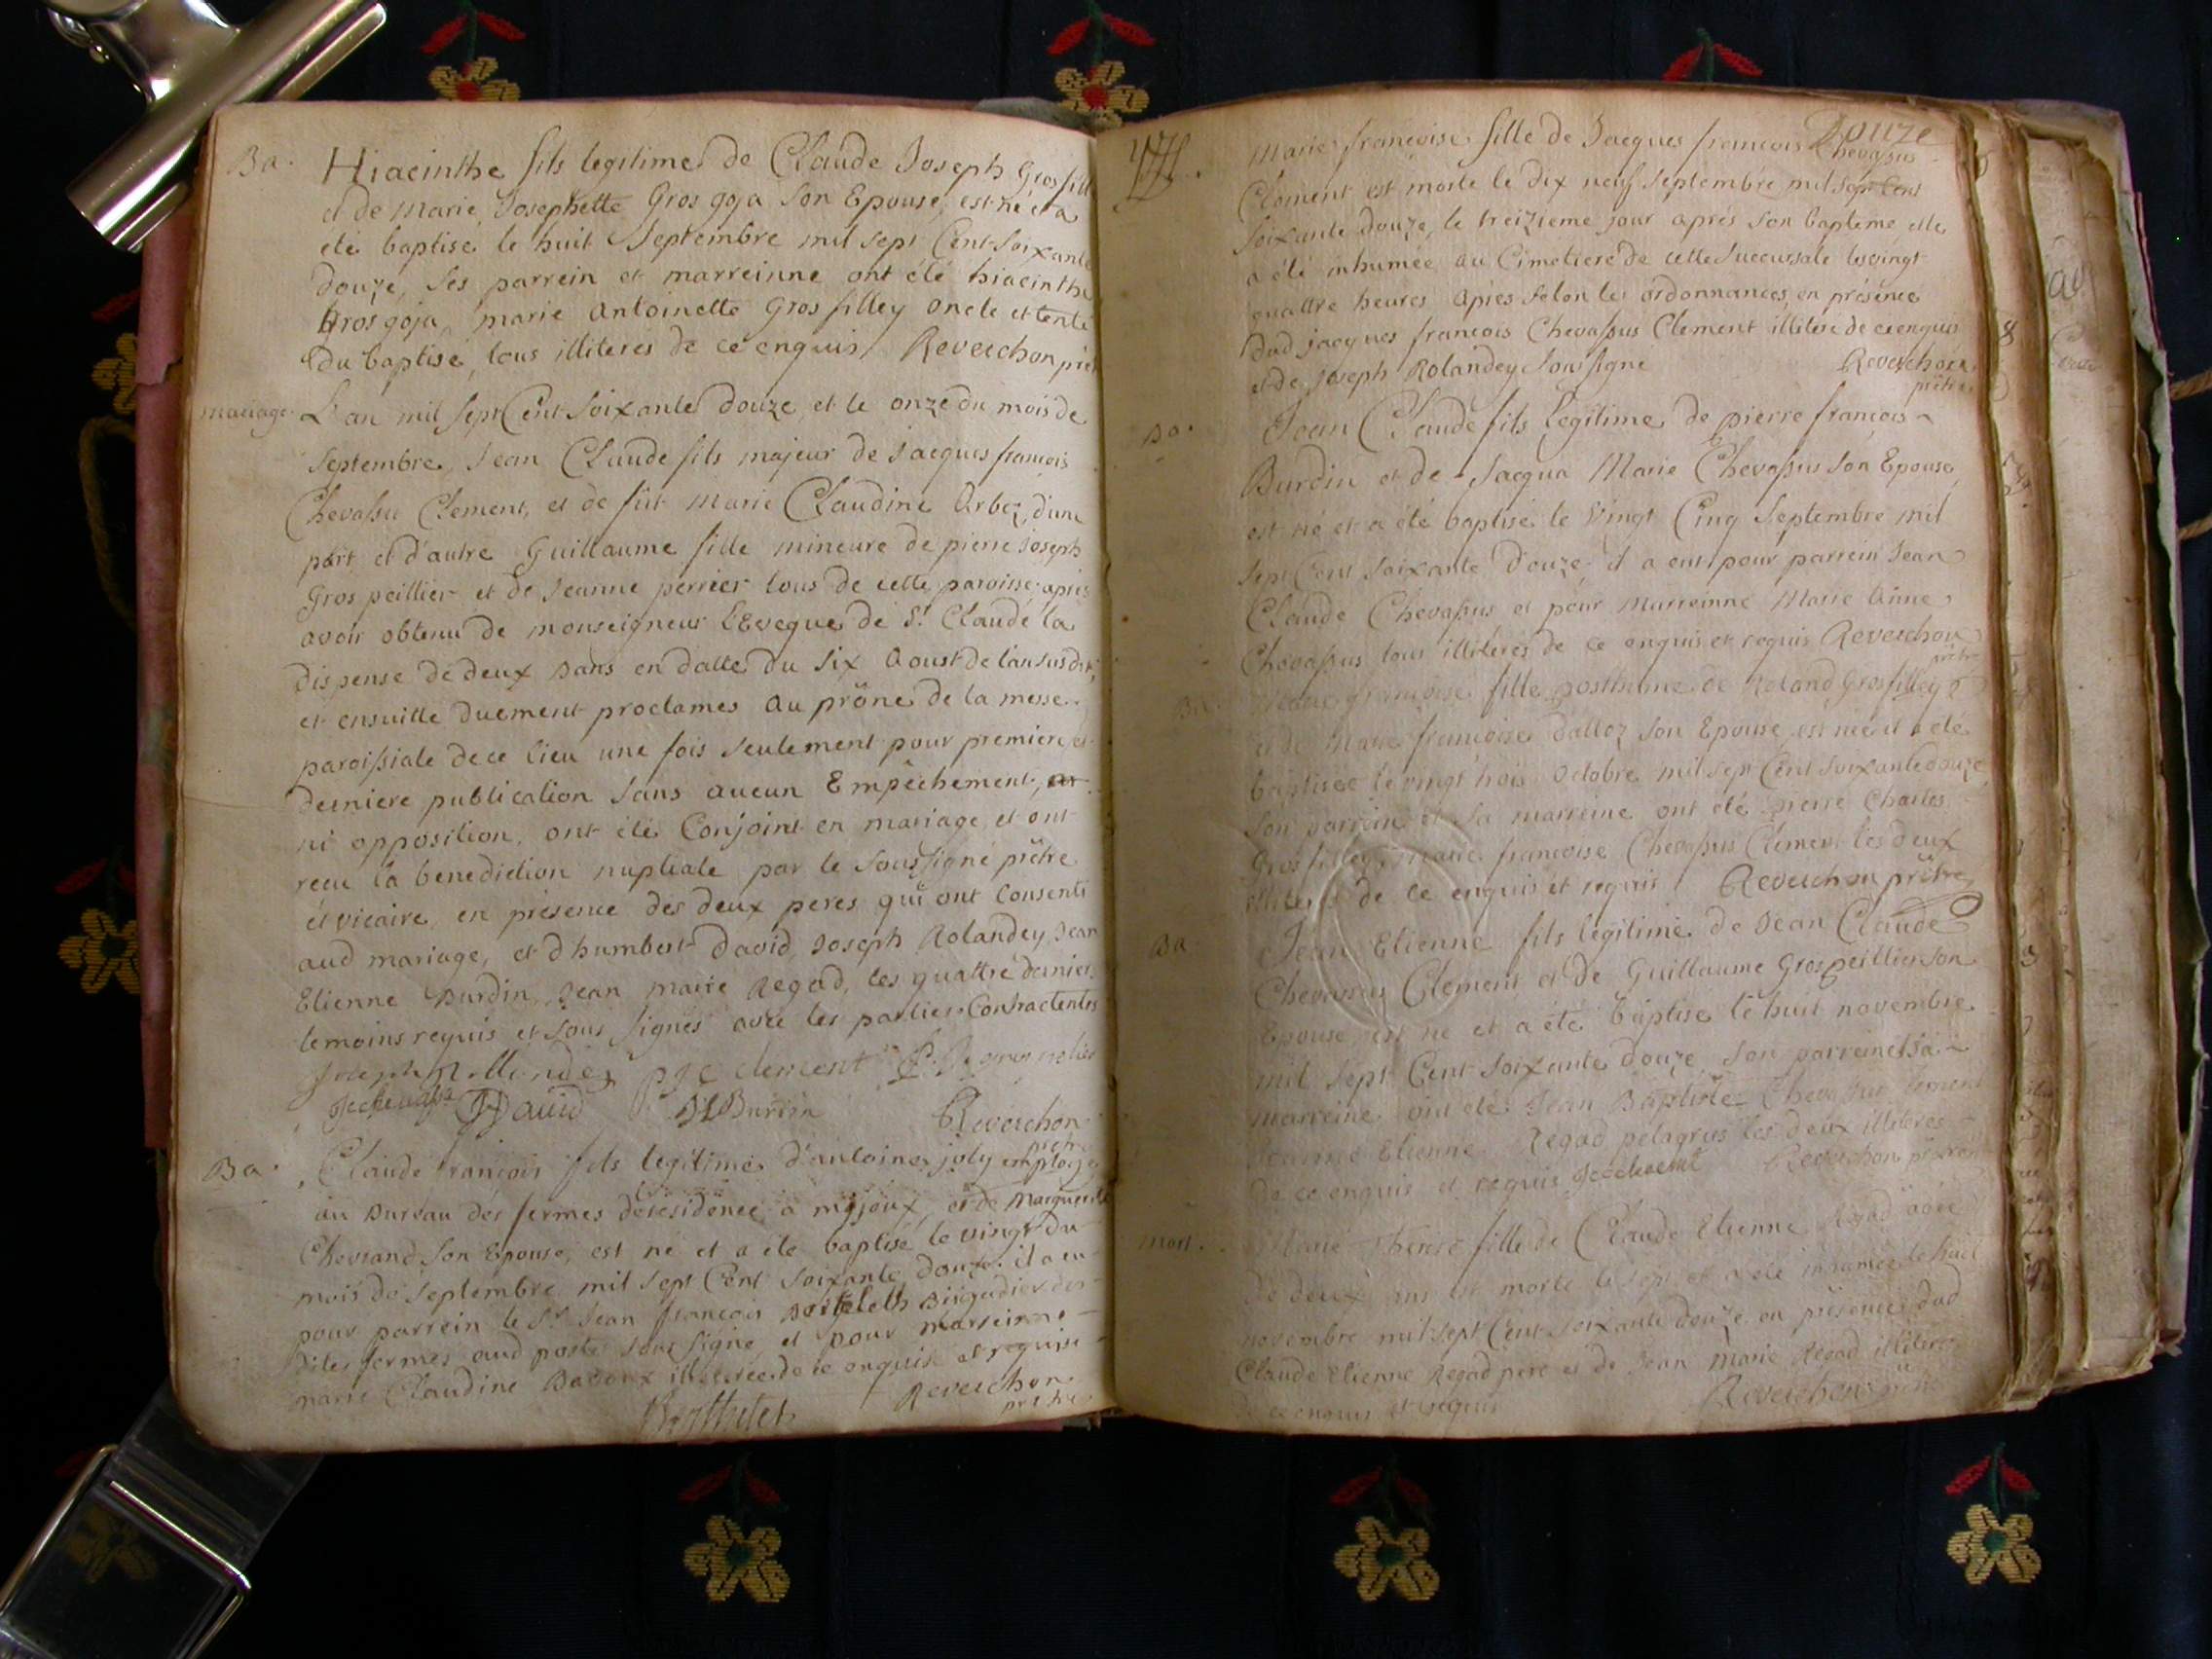 Ba. Hiacinthe fils legitime de Claude Joseph Gros fill
et de Marie Josephette Gros goja son Epouse, est né et a
été baptisé le huit Septembre mil sept Cent soixante
douze, ses parrein et marreinne ont été hiacinthe
Gros goja, marie Antoinette Gros filley oncle et tente
du baptisé, tous illiteres de ce enquis, Reverchon prêt
mariage. L'an mil sept Cent soixante douze et le onze du mois de
septembre, Jean Claude fils majeur de Jacques françois
Chevassu Clement, et de fût Marie Claudine Arbez, d'une
part, et d'autre Guillaume fille mineure de pierre Joseph
Gros peillier et de Jeanne perrier tous de cette paroisse, après
avoir obtenu de monseigneur L'Eveque de St Claude la
dispense de deux bans en datte du six Aoust de l'an susdit,
et ensuitte duement proclamés au prône de la messe
paroissiale de ce lieu une fois seulement pour premiere et
derniere publication sans aucun Empêchement,
ni opposition, ont été Conjoint en mariage, et ont
recu la benediction nuptiale par le soussigné prêtre
et vicaire, en présence des deux peres qui ont Consenti
aud mariage, et d'humbert David, Joseph Rolandey, Jean
Etienne Burdin, Jean marie Regad, les quattre derniers
temoins requis et sous signés avec les parties Contractentes
Joseph Rollandez PJC clement
David Burdin Reverchon
pretr
Ba. Claude françois fils legitime d'antoine joly employé
au Bureau des fermes de residence a mijoux, et de Marguerite
Chevrand son Epouse, est né et a été baptisé le vingt du
mois de septembre mil sept Cent soixante douze. il a eu
pour parrein le Sr Jean françois Berthelet Brigadier des
dites fermes aud poste sous signé, et pour marreinne
marie Claudine illiterée de ce enquise et requise
Berthelet Reverchon
prêtre
Douze
Marie françoise fille de Jacques francois Chevassus
Clement est morte le dix neuf septembre mil sept Cent
soixante douze, le treizieme jour après son baptême elle
a été inhumée au Cimetiere de cette succursale les vingt
quattre heures après selon les ordonnances, en présence
dud jacques francois Chevassus Clement illiteré de ce enquis
et de Joseph Rolandey soussigné Reverchon
prêtre
Ba. Jean Claude fils legitime de pierre francois
Burdin et de Jacqua Marie Chevassus son Epouse,
est né et a été baptisé le vingt Cinq Septembre mil
sept Cent soixante douze, il a eut pour parrein Jean
Claude Chevassus et pour marreinne Marie Aimé
Chevassus tous illiterés de ce enquis et requis Reverchon
prêtre
Ba. Marie françoise fille posthume de Roland Grosfilley
et de Marie francoise Dalloz son Epouse est née et a été
baptisée le vingt trois Octobre mil sept Cent soixante douze
son parrein et sa marreine ont été pierre Charles
Grosfilley, Marie francoise Chevassus Clement les deux
illiterés de ce enquis et requis Reverchon prêtre
Ba Jean Etienne fils légitime de Jean Claude
Chevassus Clement et de Guillaume Grospeillier son
Epouse est né et a été baptisé le huit novembre
mil sept Cent soixante douze, son parrein et sa
marreine ont été Jean Baptiste Chevassus Clement
Etienne Regad pelagrus les deux illiteres
de ce enquis et requis Reverchon prêtre
mort. Marie Therese fille de Claude Etienne Regad agée
de deux ans est morte le sept et a été inhumée le huit
novembre mil sept Cent soixante douze en présence dud
Claude Etienne Regad pere et de Jean Marie Regad illitere
de ce enquis et requis Reverchon prêtre